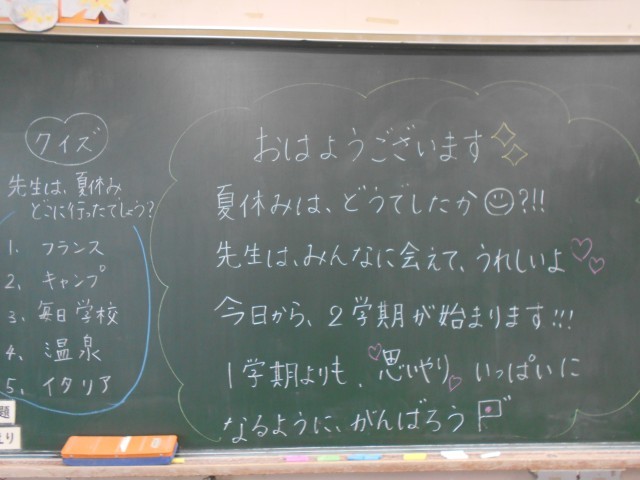 クイズ
先生は、夏休み
どこに行ったでしょう?
1. フランス
2. キャンプ
3. 毎日学校
4. 温泉
5. イタリア
おはようございます
夏休みは、どうでしたか?!!
先生は、みんなに会えて、うれしいよ
今日から、2学期が始まります!!!
1学期よりも、思いやり いっぱいに
なるように、がんばろう
題